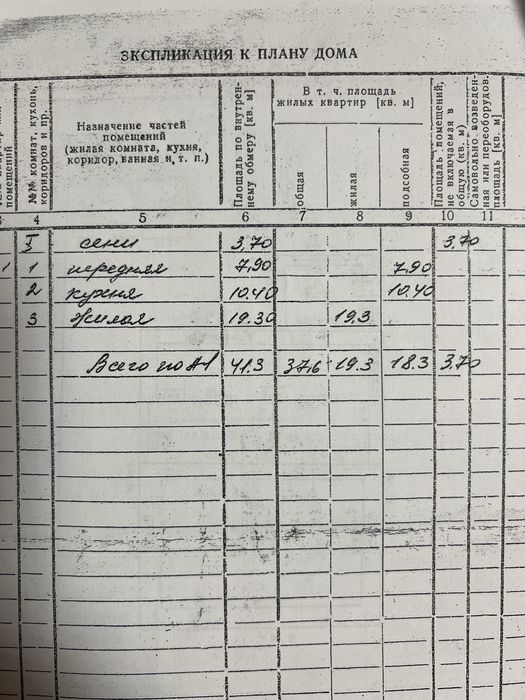 ЭКСПЛИКАЦИЯ К ПЛАНУ ДОМА
помещений
№№ комнат, кухонь, коридоров и пр.
Назначение частей
помещений
(жилая комната, кухня,
коридор, ванная и т. п.)
Площадь по внутреннему обмеру [кв. м]
В т. ч. площадь
жилых квартир [кв. м]
общая
жилая
подсобная
Площадь помещений, не включаемая в общую (кв. м)
Самовольно возведенная или переоборудов. площадь [кв. м]
3 4 5 6 7 8 9 10 11
I сени 3,70 3,70
1 1 передняя 7,90 7,90
2 кухня 10.40 10.40
3 жилая 19.30 19,3
Всего по А1 41.3 37,6 19.3 18.3 3,70